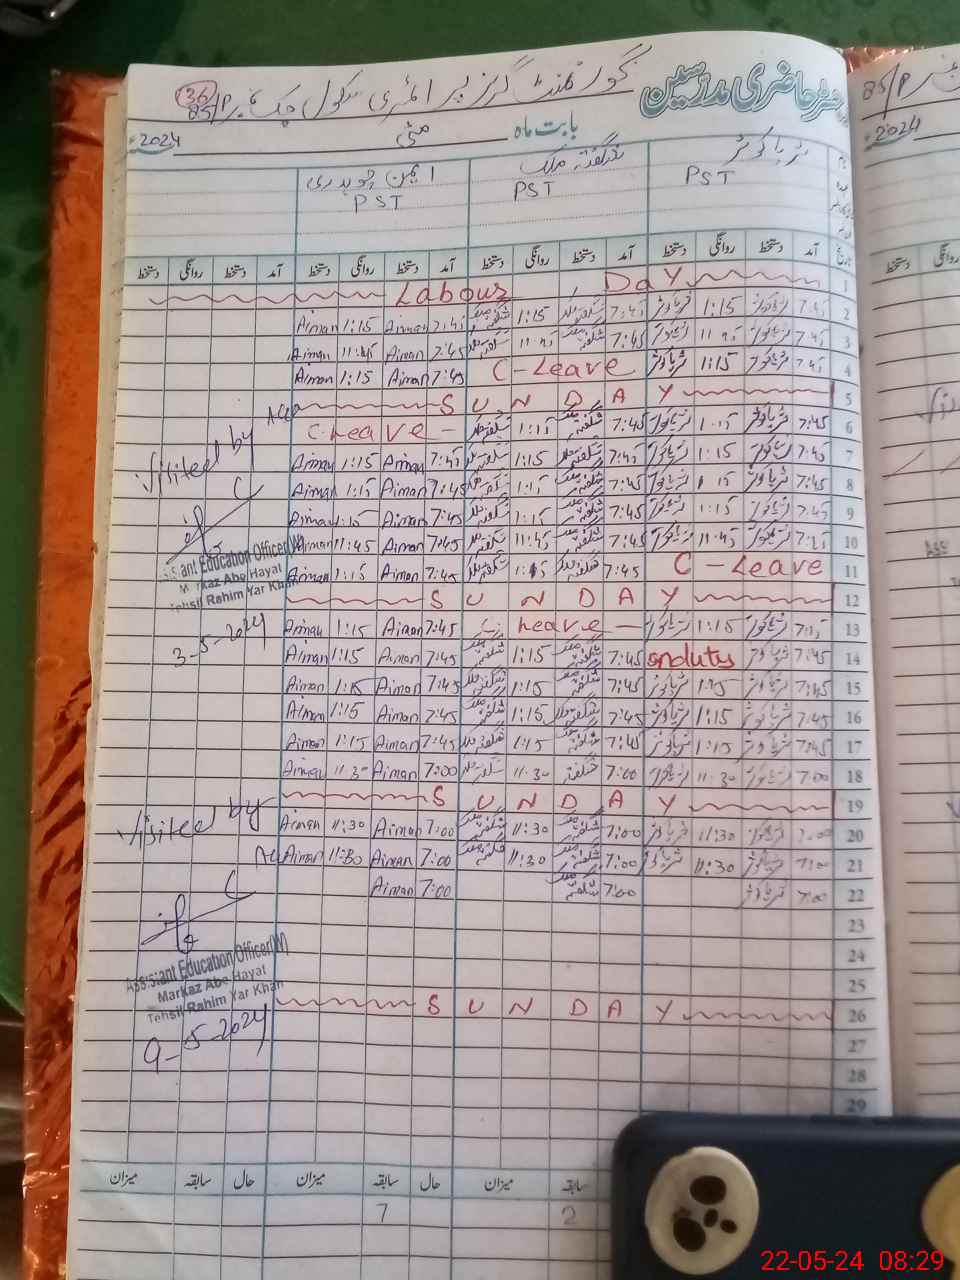 رجسٹر حاضری مدرسین گورنمنٹ گرلز پرائمری سکول چک نمبر 85/P
36
بابت ماہ مئی 2024ء
ثریا کوثر شگفتہ ملک ایمن چوہدری
PST PST PST
تاریخ آمد دستخط روانگی دستخط آمد دستخط روانگی دستخط آمد دستخط روانگی دستخط آمد دستخط روانگی دستخط
1 Labour Day
2 7:45 ثریا کوثر 1:15 ثریا کوثر 7:45 شگفتہ ملک 1:15 شگفتہ ملک 7:45 Aiman 1:15 Aiman
3 7:45 ثریا کوثر 11:45 ثریا کوثر 7:45 شگفتہ ملک 11:45 شگفتہ ملک 7:45 Aiman 11:45 Aiman
4 7:45 ثریا کوثر 1:15 ثریا کوثر C-Leave 7:45 Aiman 1:15 Aiman
5 SUNDAY
6 7:45 ثریا کوثر 1:15 ثریا کوثر 7:45 شگفتہ ملک 1:15 شگفتہ ملک C Leave -
7 7:45 ثریا کوثر 1:15 ثریا کوثر 7:45 شگفتہ ملک 1:15 شگفتہ ملک 7:45 Aiman 1:15 Aiman
8 7:45 ثریا کوثر 1:15 ثریا کوثر 7:45 شگفتہ ملک 1:15 شگفتہ ملک 7:45 Aiman 1:15 Aiman
9 7:45 ثریا کوثر 1:15 ثریا کوثر 7:45 شگفتہ ملک 1:15 شگفتہ ملک 7:45 Aiman 1:15 Aiman
10 7:45 ثریا کوثر 11:45 ثریا کوثر 7:45 شگفتہ ملک 11:45 شگفتہ ملک 7:45 Aiman 11:45 Aiman
11 C-Leave 7:45 شگفتہ ملک 1:15 شگفتہ ملک 7:45 Aiman 1:15 Aiman
12 SUNDAY
13 7:45 ثریا کوثر 1:15 ثریا کوثر C Leave - 7:45 Aiman 1:15 Aiman
14 7:45 ثریا کوثر onduty 7:45 شگفتہ ملک 1:15 شگفتہ ملک 7:45 Aiman 1:15 Aiman
15 7:45 ثریا کوثر 1:15 ثریا کوثر 7:45 شگفتہ ملک 1:15 شگفتہ ملک 7:45 Aiman 1:15 Aiman
16 7:45 ثریا کوثر 1:15 ثریا کوثر 7:45 شگفتہ ملک 1:15 شگفتہ ملک 7:45 Aiman 1:15 Aiman
17 7:45 ثریا کوثر 1:15 ثریا کوثر 7:45 شگفتہ ملک 1:15 شگفتہ ملک 7:45 Aiman 1:15 Aiman
18 7:00 ثریا کوثر 11:30 ثریا کوثر 7:00 شگفتہ ملک 11:30 شگفتہ ملک 7:00 Aiman 11:30 Aiman
19 SUNDAY
20 7:00 ثریا کوثر 11:30 ثریا کوثر 7:00 شگفتہ ملک 11:30 شگفتہ ملک 7:00 Aiman 11:30 Aiman
21 7:00 ثریا کوثر 11:30 ثریا کوثر 7:00 شگفتہ ملک 11:30 شگفتہ ملک 7:00 Aiman 11:30 Aiman
22 7:00 ثریا کوثر 7:00 شگفتہ ملک 7:00 Aiman
23
24
25
26 SUNDAY
27
28
29
Visited by
Assistant Education Officer(W)
Markaz Abe Hayat
Tehsil Rahim Yar Khan
3-5-2024
Visited by
Assistant Education Officer(W)
Markaz Abe Hayat
Tehsil Rahim Yar Khan
9-5-2024
سابقہ میزان حال سابقہ میزان حال سابقہ میزان
2 7
85/P
2024ء
روانگی دستخط
22-05-24 08:29